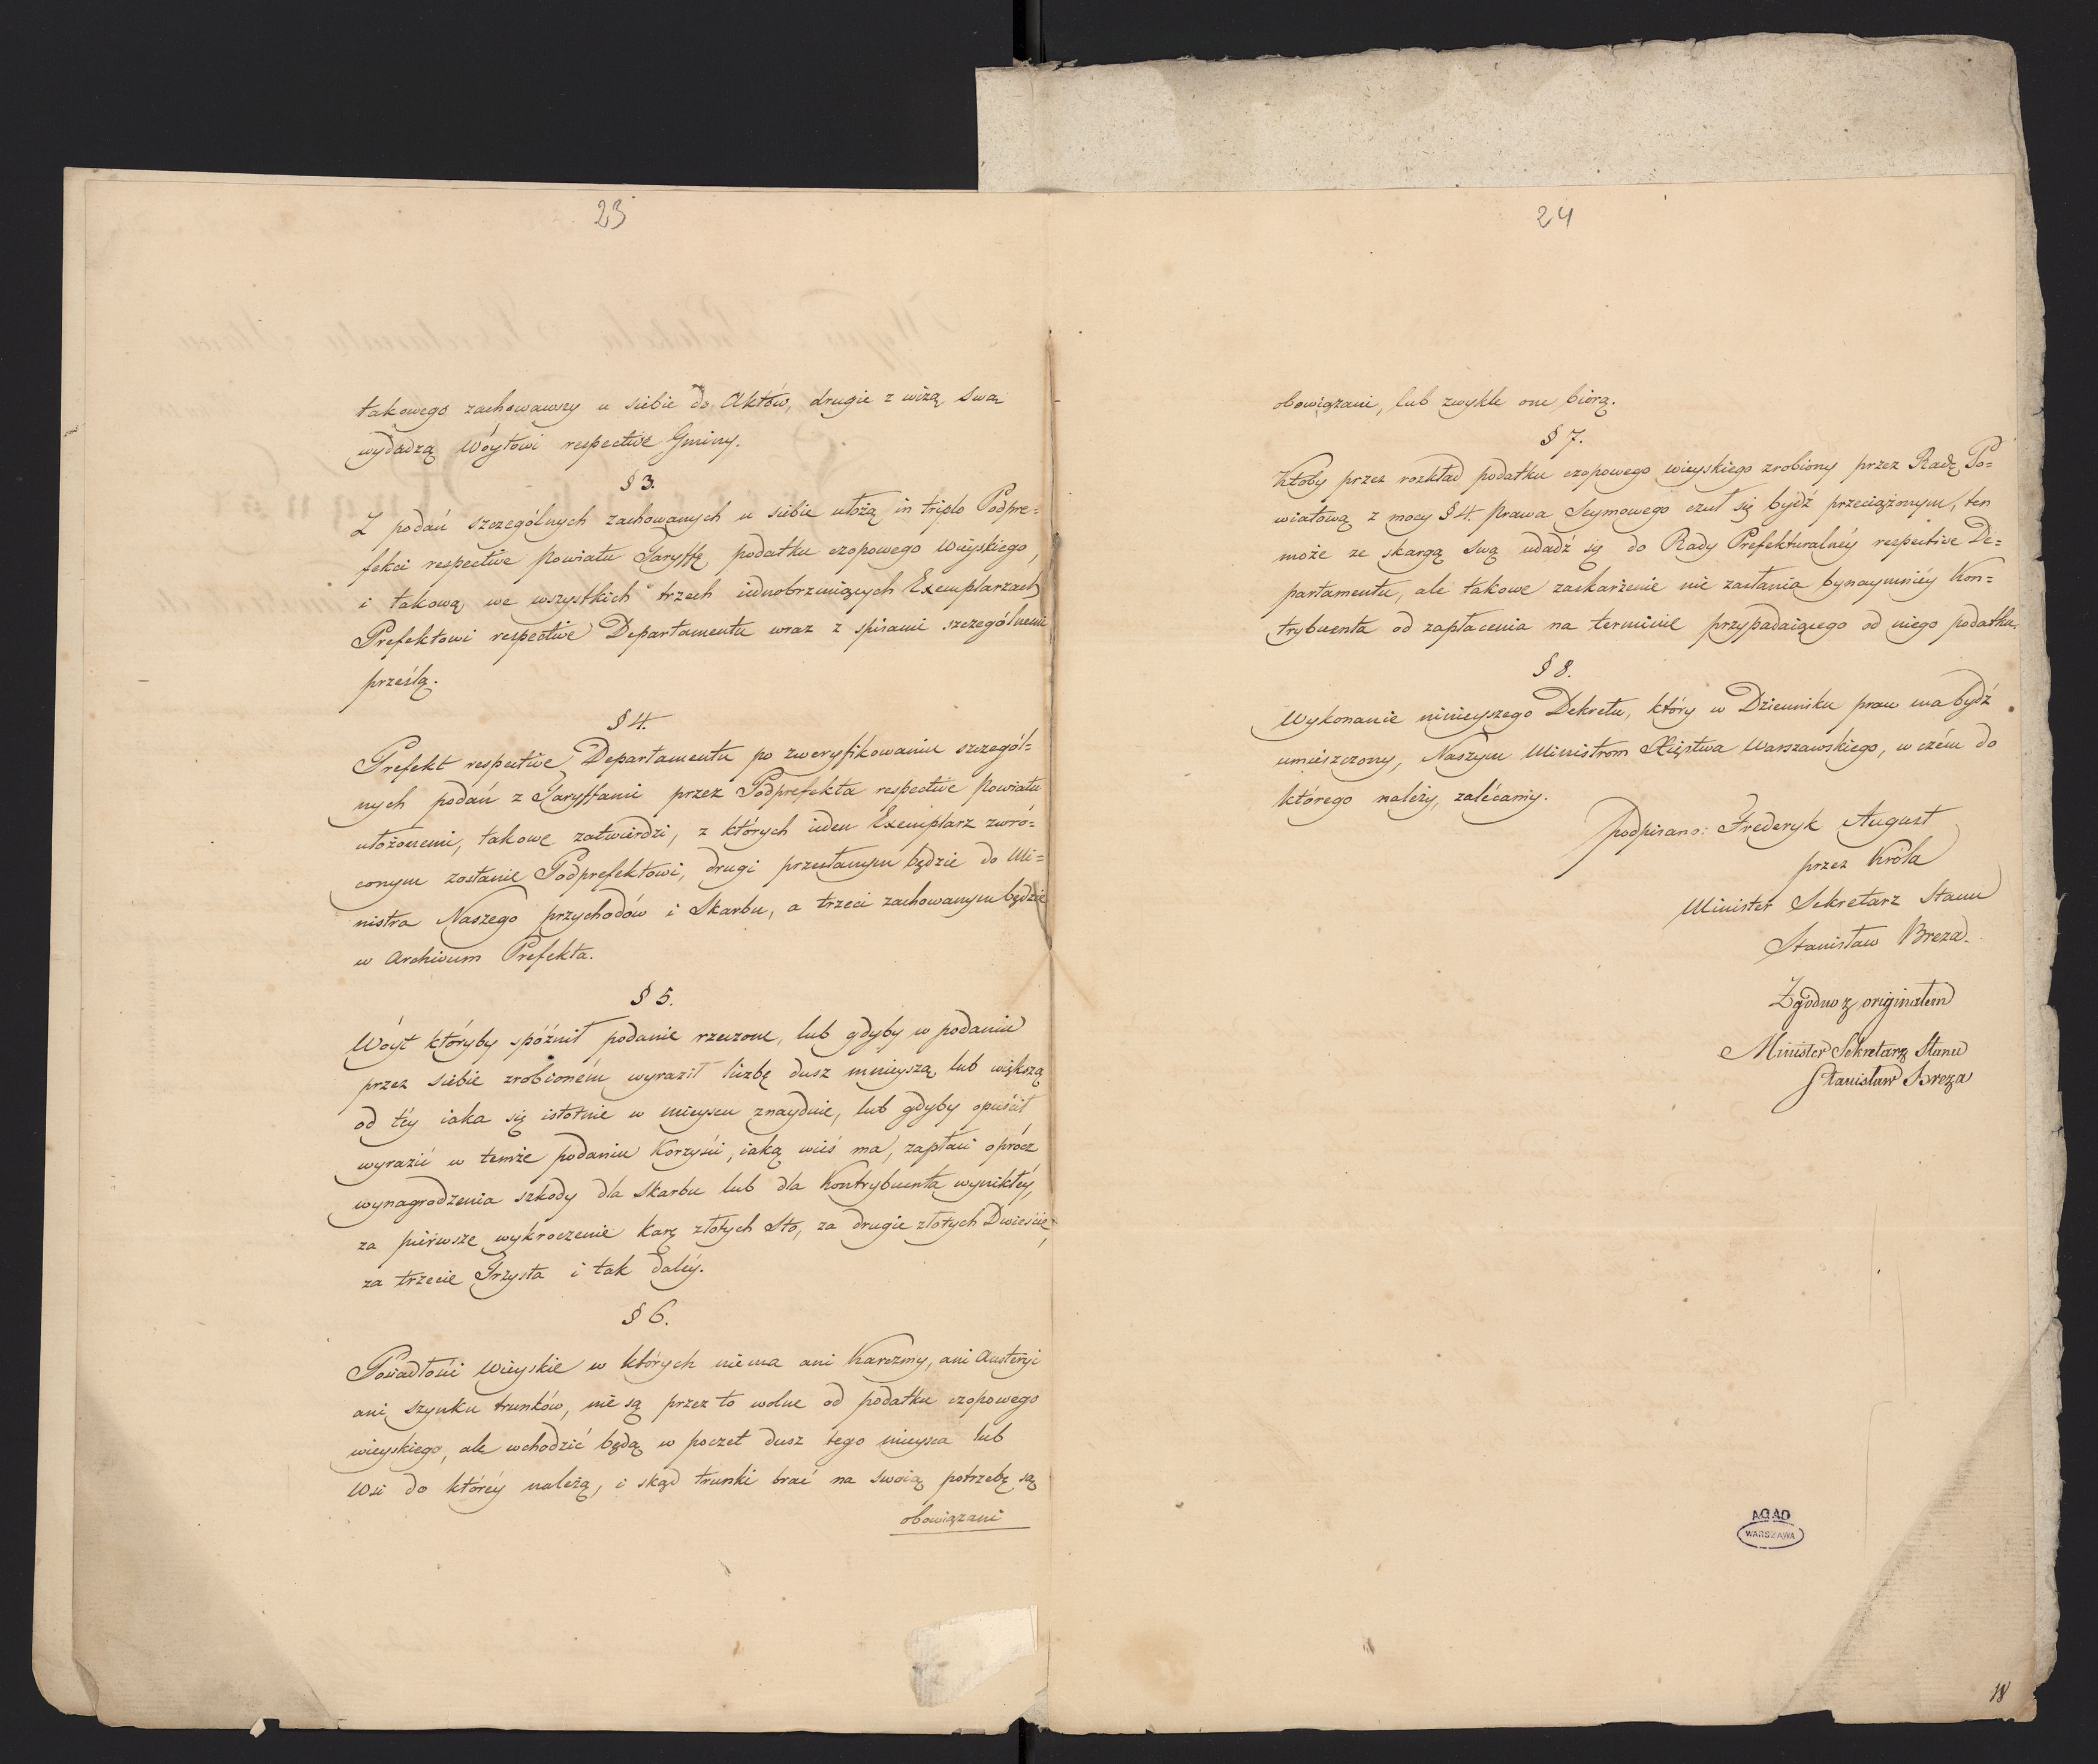 23
takowego zachowawszy u siebie do Aktów, drugie z wizą swą
wydadzą Wóytowi respective Gminy.
§ 3.
Z podań szczególnych zachowanych u siebie ułożą in triplo Podpre=
fekci respective Powiatu Taryffę podatku czopowego Wieyskiego,
i takową we wszystkich trzech iednobrzmiących Exemplarzach
Prefektowi respective Departamentu wraz z spisami szczególnemi
prześlą.
§ 4.
Prefekt respective Departamentu po zweryfikowaniu szczegól=
nych podań z Taryffami przez Podprefekta respective Powiatu
ułożonemi, takowe zatwierdzi, z których ieden Exemplarz zwró=
conym zostanie Podprefektowi, drugi przesłanym będzie do Mi=
nistra Naszego przychodów i Skarbu, a trzeci zachowanym będzie
w Archivum Prefekta.
§ 5.
Wóyt któryby spóźnił podanie rzeczone, lub gdyby w podaniu
przez siebie zrobioném wyraził liczbę dusz mnieyszą lub większą
od téy iaka się istotnie w mieyscu znayduie, lub gdyby opuścił
wyrazić w temże podaniu Korzyści, iaką wieś ma, zapłaci oprócz
wynagrodzenia szkody dla Skarbu lub dla Kontrybuenta wynikłéy,
za piérwsze wykroczenie karę złotych Sto, za drugie złotych Dwieście,
za trzecie Trzysta i tak daléy.
§ 6.
Posiadłości Wieyskie w których niema ani Karczmy, ani Austeryi
ani szynku trunków, nie są przez to wolne od podatku czopowego
wieyskiego, ale wchodzić będą w poczet dusz tego mieysca lub
Wsi do któréy należą, i skąd trunki brać na swoią potrzebę są
obowiązani
24
obowiązani, lub zwykle one biorą.
§ 7.
Ktoby przez rozkład podatku czopowego wieyskiego zrobiony przez Radę Po=
wiatową z mocy § 4. Prawa Seymowego czuł się bydź przeciążonym, ten
może ze skargą swą udadź się do Rady Prefekturalnéy respective De=
partamentu, ale takowe zaskarżenie nie zasłania bynaymniéy Kon=
trybuenta od zapłacenia na terminie przypadaiącego od niego podatku.
§ 8.
Wykonanie ninieyszego Dekretu, który w Dzienniku praw ma bydź
umieszczony, Naszym Ministrom Xięstwa Warszawskiego, w czém do
którego należy, zalécamy.
podpisano: Frederyk August
przez Króla
Minister Sekretarz Stanu
Stanisław Breza.
Zgodno z originałem
Minister Sekretarz Stanu
Stanisław Breza
AGAD
WARSZAWA
18